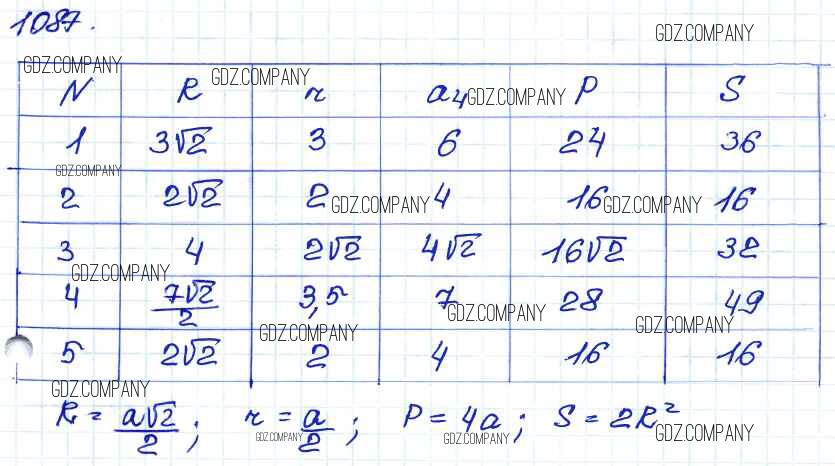 1087.
GDZ.COMPANY
GDZ.COMPANY GDZ.COMPANY
N R r a₄ GDZ.COMPANY P S
1 3√2 3 6 24 36
GDZ.COMPANY
2 2√2 2 GDZ.COMPANY 4 16 GDZ.COMPANY 16
3 4 2√2 4√2 16√2 32
GDZ.COMPANY
4 7√2/2 3,5 7 28 49
GDZ.COMPANY GDZ.COMPANY GDZ.COMPANY
5 2√2 2 4 16 16
GDZ.COMPANY
R = a√2/2 ; r = a/2 ; P = 4a ; S = 2R²
GDZ.COMPANY GDZ.COMPANY GDZ.COMPANY